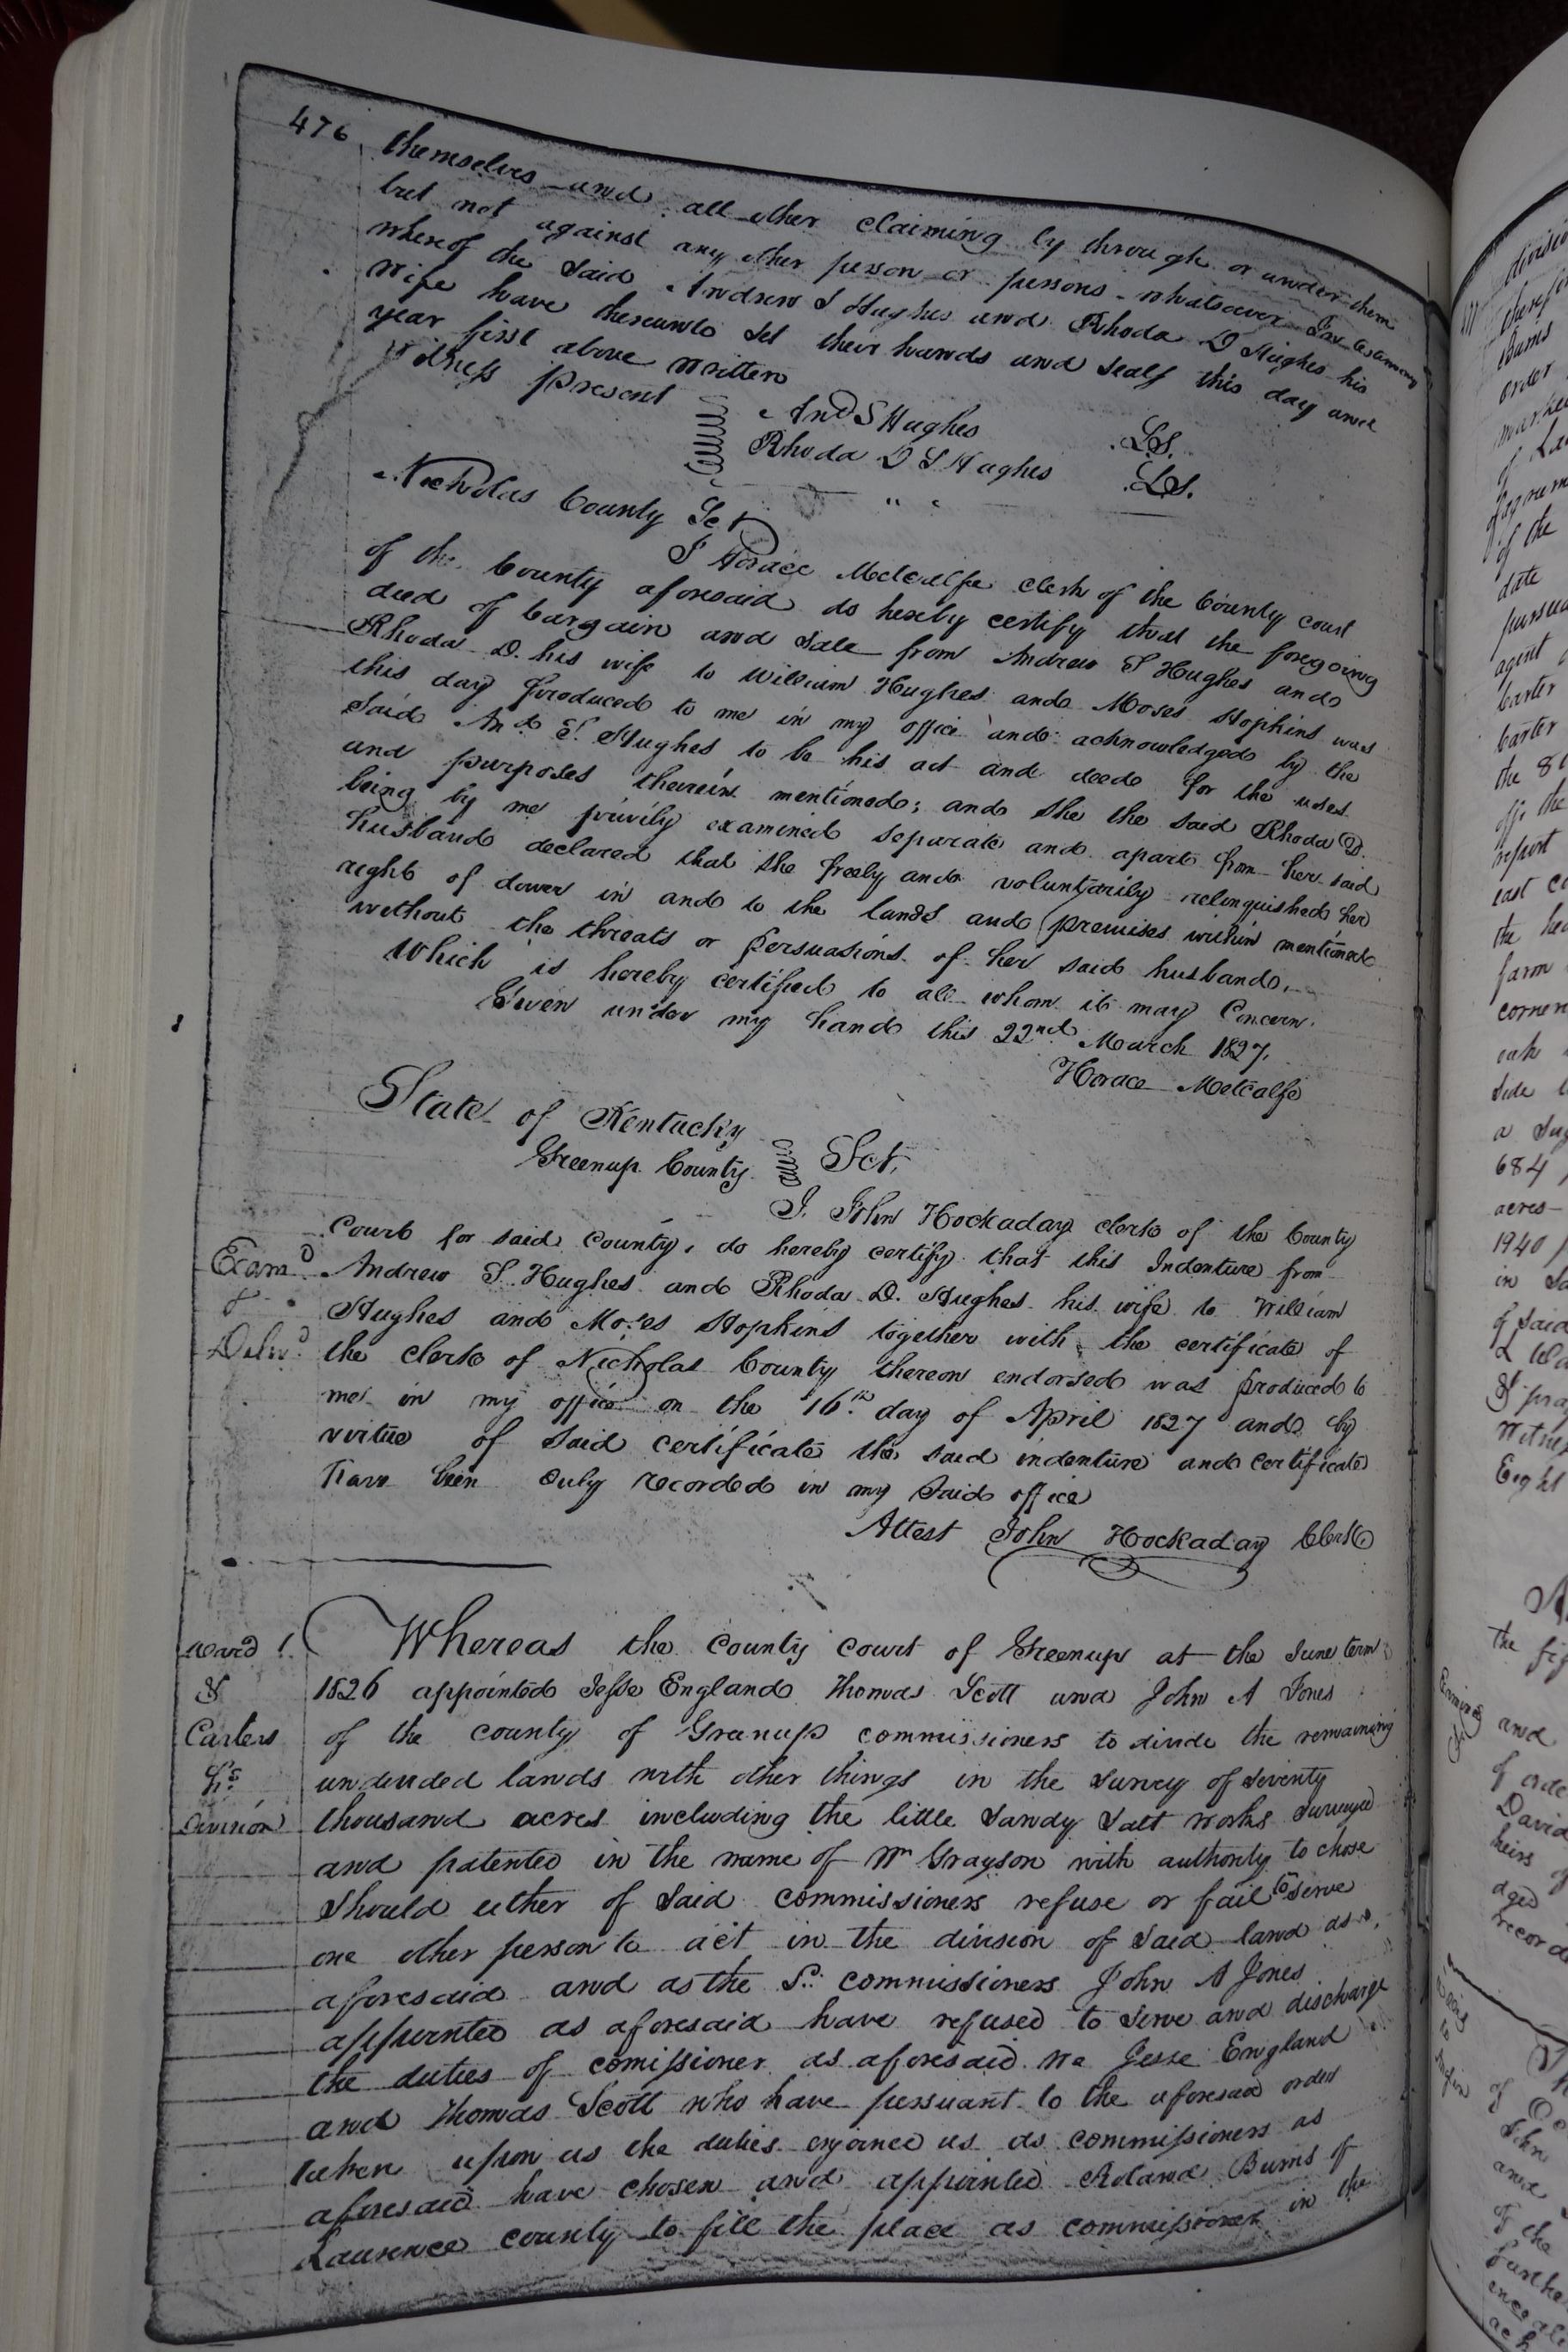 476
themselves and all other claiming by through or under them
but not against any other person or persons whatsoever In testimony
whereof the said Andrew S Hughes and Rhoda D Hughes his
wife have thereunto set their hands and seals this day and
year first above written
Witness present
And S Hughes L.S.
Rhoda D S Hughes L.S.
Nicholas County Sct
I Horace Metcalfe clerk of the County court
of the County aforesaid do hereby certify that the foregoing
deed of bargain and sale from Andrew S Hughes and
Rhoda D. his wife to William Hughes and Moses Hopkins was
this day produced to me in my office and acknowledged by the
said And. S. Hughes to be his act and deed for the uses
and purposes therein mentioned; and she the said Rhoda D.
being by me privily examined separate and apart from her said
husband declared that she freely and voluntarily relinquished her
right of dower in and to the lands and premises within mentioned
without the threats or persuasions of her said husband.
Which is hereby certified to all whom it may Concern.
Given under my hand this 22nd March 1827.
Horace Metcalfe
State of Kentucky
Greenup County Sct.
I. John Hockaday clerk of the County
Court for said County, do hereby certify that this Indenture from
Examd Andrew S. Hughes and Rhoda D. Hughes his wife to William
Hughes and Moses Hopkins together with the certificate of
Delvd the clerk of Nicholas County thereon endorsed was produced to
me in my office on the 16th day of April 1827 and by
virtue of said certificate the said indenture and certificate
have been duly recorded in my said office
Attest John Hockaday Clerk
Whereas the county court of Greenup at the June term
1826 appointed Jesse England Thomas Scott and John A Jones
Carters of the county of Greenup commissioners to divide the remaining
hrs undivided lands with other things in the survey of seventy
Division thousand acres including the little Sandy Salt works surveyed
and patented in the name of Wm Grayson with authority to chose
should either of said commissioners refuse or fail to serve
one other person to act in the division of said land as
aforesaid and as the Sd. commissioners John A Jones
appointed as aforesaid have refused to serve and discharge
the duties of comissioner as aforesaid we Jesse England
and Thomas Scott who have persuant to the aforesaid order
taken upon us the duties enjoined us as commissioners as
aforesaid have chosen and appointed Roland Burns of
Laurence county to fill the place as commissioner in the